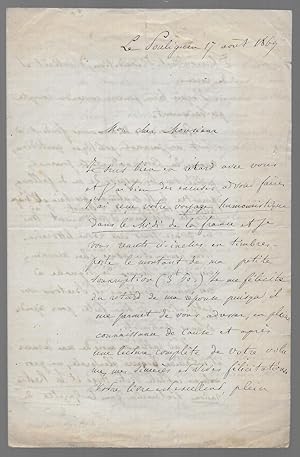 Le Pouliguen 17 août 1869
Mon cher Monsieur
Je suis bien en retard avec vous
et j'ai bien des excuses à vous faire
J'ai reçu votre voyage
dans le Midi de la france et je
vous remets ci-inclus en timbres
poste le montant de ma petite
souscription (3f 50). Je me félicite
du retard de ma réponse puisqu'il
me permet de vous adresser, en pleine
connaissance de cause et après
une lecture complète de votre volu
me, mes sincères et vives félicitations
Votre livre est excellent, plein